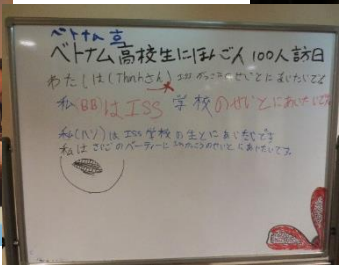 ベトナム
ベトナム高校生にほんご人100人訪日
わたしは(Thinhさん)はISSがっこうのせいとにあいたいです
私(BB)はISS学校のせいとにあいたいです
私(ハン)はISS学校の生とにあいたいです
私はさいごのパーティーにISSがっこうのせいとにあいたいです